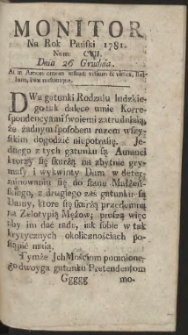 MONITOR
Na Rok Pański 1781.
Num: CIII.
Dnia 26 Grudnia.
DWa gatunki Rodzaiu ludzkie-
go tak dalece unie Korre-
spondencyami swoiemi zatrudniaią,
że żadnym sposobem razem wszy-
skim dogodzić niepotrafię. Je-
dnego z tych gatunku są Amanci
ktorzy się skarżą na zbytnie gry-
masy i wykwinty Dam w determi-
nowaniu się do stanu Małżeń-
skiego, z drugiego zaś gatunku są
Damy, ktore się skarżą przeciwnie
na Zelotypią Mężow; proszą więc
aby im dać radę, iak sobie w tak
krytycznych okolicznościach po-
stąpić maią.
Tymże JchMościom pomienione-
go dwoyga gatunku Pretendentom
Ggggg mo-